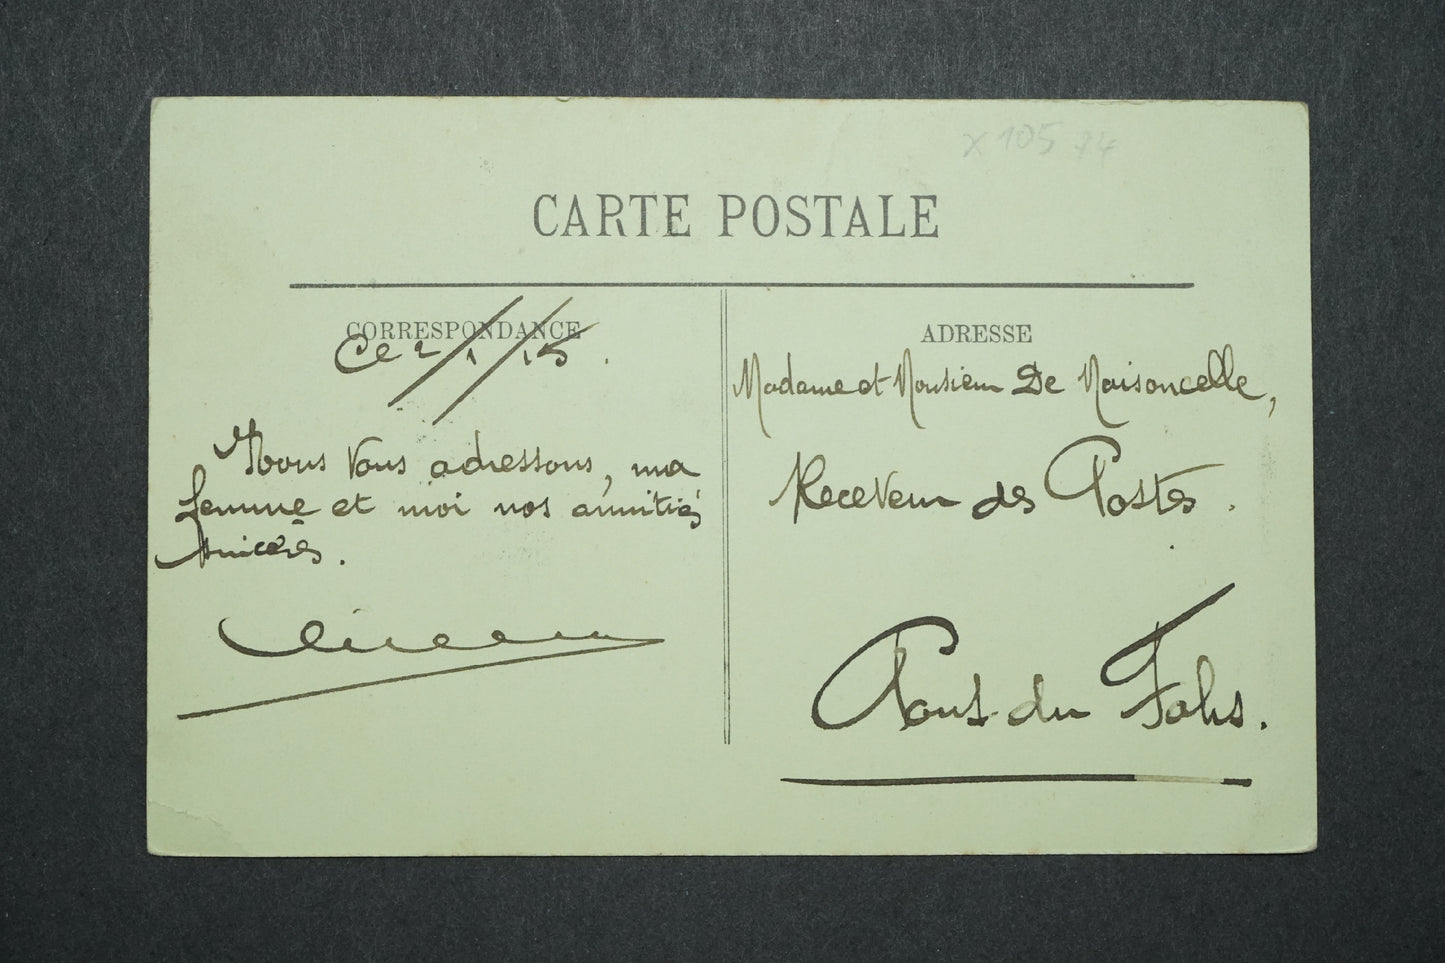 x 105 74
CARTE POSTALE
CORRESPONDANCE
Ce 2/1/15.
Nous Vous adressons, ma
femme et moi nos amitiés
sincères.
ADRESSE
Madame et Monsieur De Maisoncelle,
Receveur des Postes.
Pont-du Fahs.